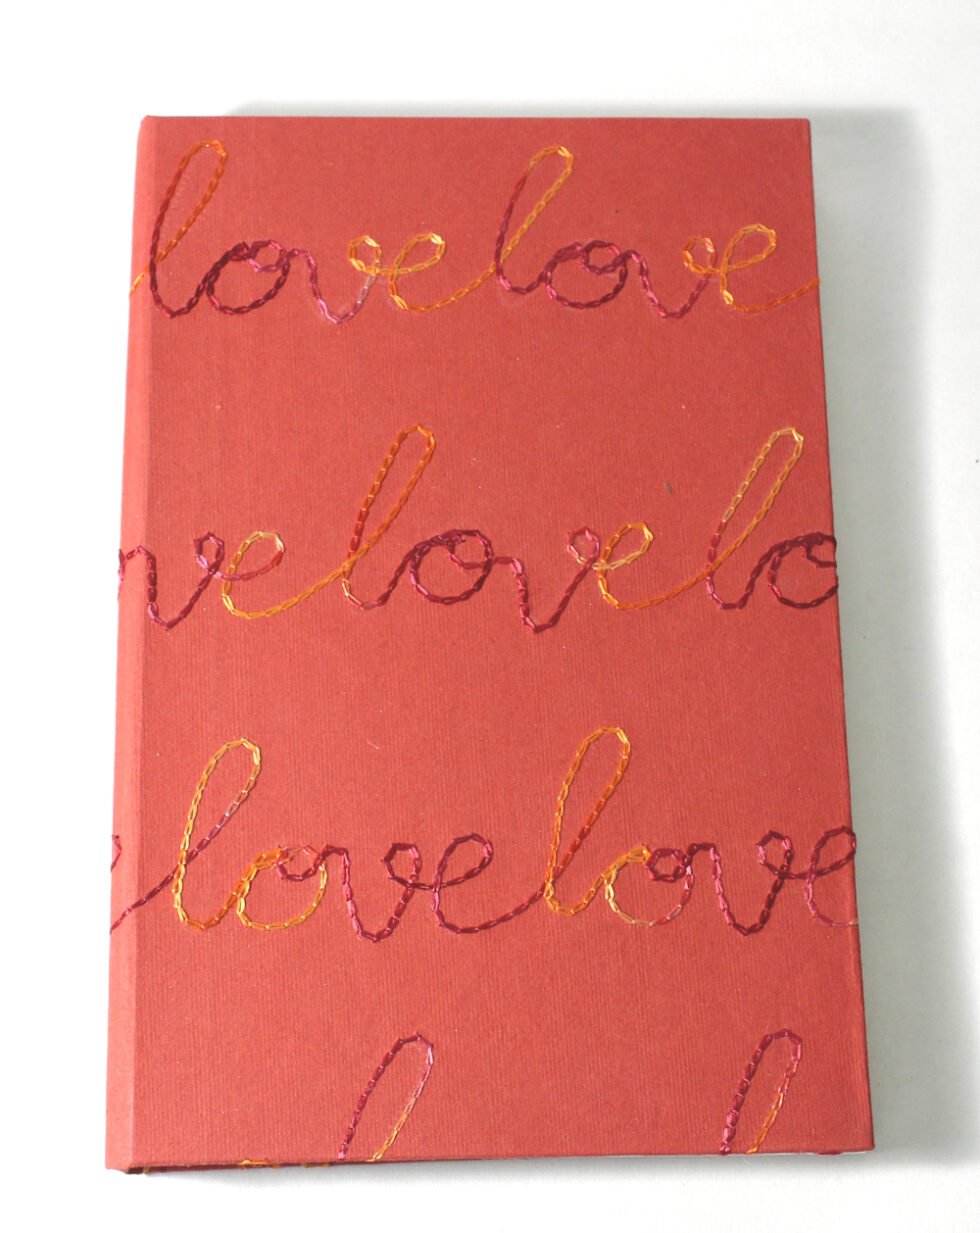 lovelove
velovelo
lovelove
l l